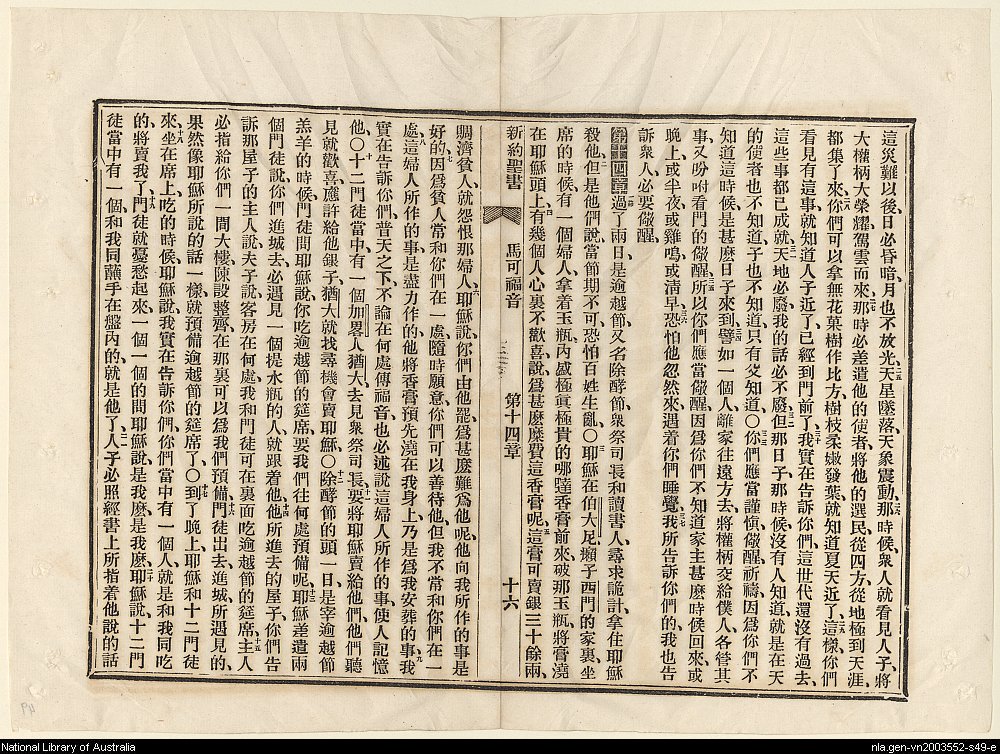 這災難以後日必昏暗、月也不放光、天星墜落天象震動、那時候衆人就看見人子、將
大權柄大榮耀駕雲而來、那時必差遣他的使者、將他的選民從四方、從地極到天涯、
都集了來、你們可以拿無花菓樹作比方、樹枝柔嫩發葉、就知道夏天近了、這樣你們
看見有這事、就知道人子近了、已經到門前了、我實在告訴你們、這世代還沒有過去、
這些事都已成就、天地必廢、我的話必不廢、但那日子那時候、沒有人知道、就是在天
的使者也不知道、子也不知道、只有父知道、○你們應當謹愼、儆醒祈禱、因爲你們不
知道這時候是甚麽日子來到、譬如一個人、離家往遠方去、將權柄交給僕人、各管其
事、又吩咐看門的儆醒、所以你們應當儆醒、因爲你們不知道家主甚麽時候回來、或
晚上、或半夜、或雞鳴、或清早、恐怕他忽然來、遇着你們睡覺、我所告訴你們的、我也告
訴衆人、必要儆醒、
第十四章過了兩日、是逾越節、又名除酵節、衆祭司長和讀書人、尋求詭計、拿住耶穌
殺他、但是他們說、當節期不可、恐怕百姓生亂、○耶穌在伯大尼癩子西門的家裏、坐
席的時候、有一個婦人、拿着玉瓶、內盛極眞極貴的哪噠香膏前來、破那玉瓶、將膏澆
在耶穌頭上、有幾個人心裏不歡喜、說、爲甚麽糜費這香膏呢、這膏可賣銀三十餘兩、
新約聖書 馬可福音 第十四章 十六
賙濟貧人、就怨恨那婦人、耶穌說、你們由他罷、爲甚麽難爲他呢、他向我所作的事是
好的、因爲貧人常和你們在一處、隨時願意、你們可以善待他、但我不常和你們在一
處、這婦人所作的事、是盡力作的、他將香膏預先澆在我身上、乃是爲我安葬的事、我
實在告訴你們、普天之下、不論在何處傳福音、也必述說這婦人所作的事、使人記憶
他、○十二門徒當中、有一個加畧人猶大、去見衆祭司長、要將耶穌賣給他們、他們聽
見就歡喜、應許給他銀子、猶大就找尋機會賣耶穌、○除酵節的頭一日、是宰逾越節
羔羊的時候、門徒問耶穌說、你吃逾越節的筵席、要我們往何處預備呢、耶穌差遣兩
個門徒說、你們進城去、必遇見一個提水瓶的人、就跟着他、他所進去的屋子、你們告
訴那屋子的主人說、夫子說、客房在何處、我和門徒可在裏面吃逾越節的筵席、主人
必指給你們一間大樓、陳設整齊、在那裏可以爲我們預備、門徒出去進城、所遇見的、
果然像耶穌所說的話一樣、就預備逾越節的筵席了、○到了晚上、耶穌和十二門徒
來、坐在席上吃的時候、耶穌說、我實在告訴你們、你們當中有一個人、就是和我同吃
的、將賣我了、門徒就憂愁起來、一個一個的問耶穌說、是我麽、是我麽、耶穌說、十二門
徒當中有一個、和我同蘸手在盤內的、就是他了、人子必照經書上所指着他說的話
National Library of Australia
nla.gen-vn2003552-s49-e